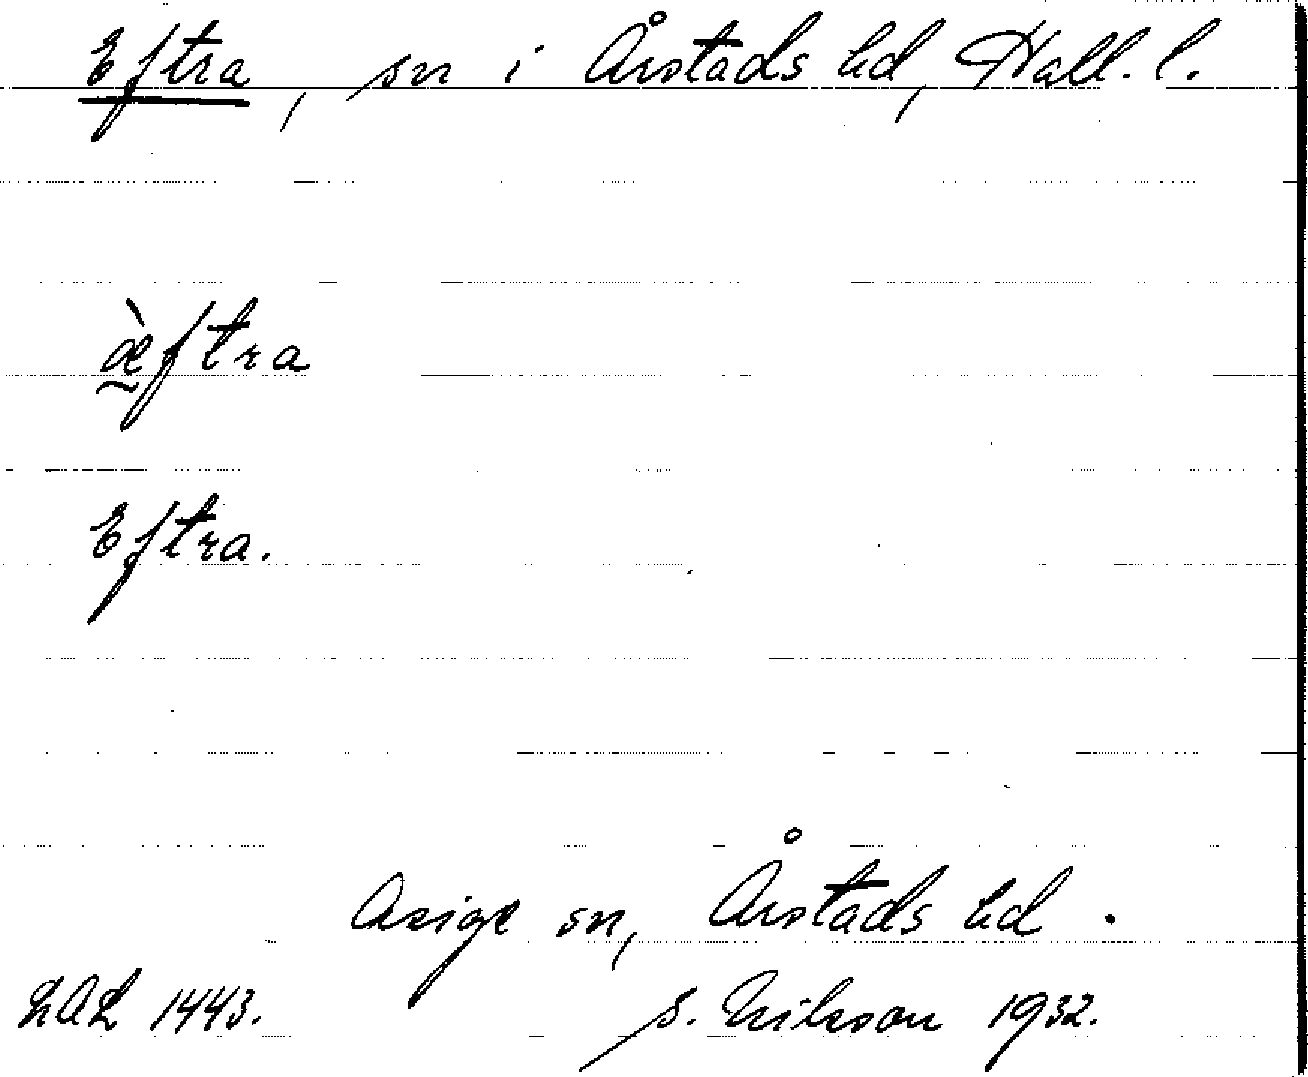 Eftra, sn i Årstads hd, Hall. l.
æ̰̀ftra
Eftra.
Asige sn, Årstads hd.
LAL 1443. S. Nilsson 1932.